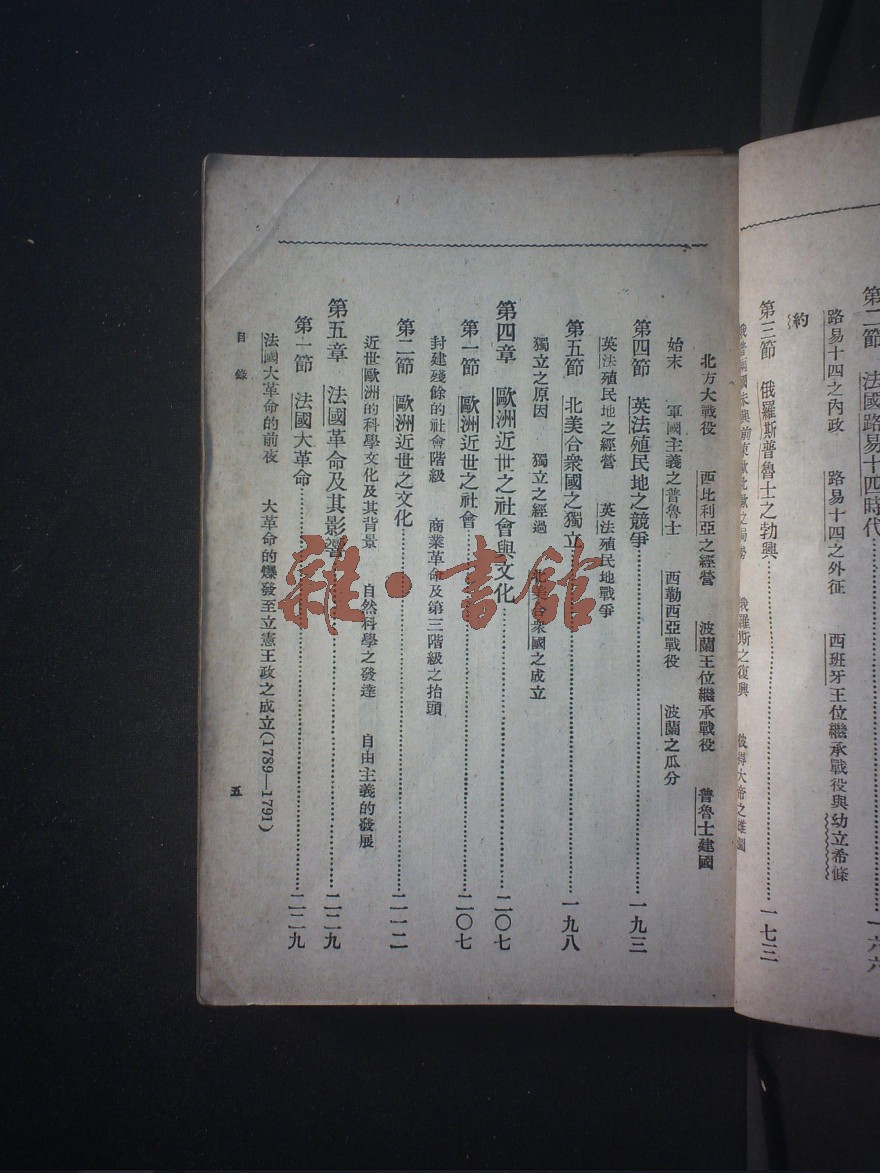 第二節　法國路易十四時代…………一六六
路易十四之內政　路易十四之外征　西班牙王位繼承戰役與幼立希條
約
第三節　俄羅斯普魯士之勃興…………一七三
俄羅斯之復興　彼得大帝之雄圖
北方大戰役　西比利亞之經營　波蘭王位繼承戰役　普魯士建國
始末　軍國主義之普魯士　西勒西亞戰役　波蘭之瓜分
第四節　英法殖民地之競爭…………一九三
英法殖民地之經營　英法殖民地戰爭
第五節　北美合衆國之獨立…………一九八
獨立之原因　獨立之經過　北美合衆國之成立
第四章　歐洲近世之社會與文化…………二〇七
第一節　歐洲近世之社會…………二〇七
封建殘餘的社會階級　商業革命及第三階級之抬頭
第二節　歐洲近世之文化…………二一二
近世歐洲的科學文化及其背景　自然科學之發達　自由主義的發展
第五章　法國革命及其影響…………二二九
第一節　法國大革命…………二二九
法國大革命的前夜　大革命的爆發至立憲王政之成立(1789—1791)
目錄　五
雜·書館